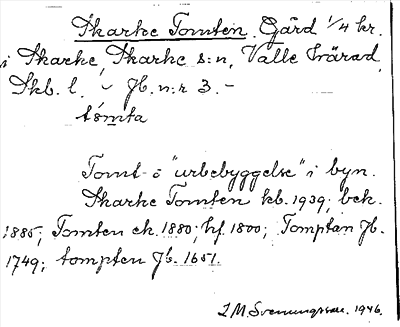 Skarke Tomten. Gård 1/4 kr.
i Skarke, Skarke s:n, Valle härad,
Skb. l. – Jb. n:r 3. –
tòmta
Tomt- o "urbebyggelse" i byn.
Skarke Tomten kb. 1939; bek.
1885; Tomten ek. 1880; hf. 1800; Tomptan Jb.
1749; tompten Jb. 1651.
I. M. Svenungsson. 1946.